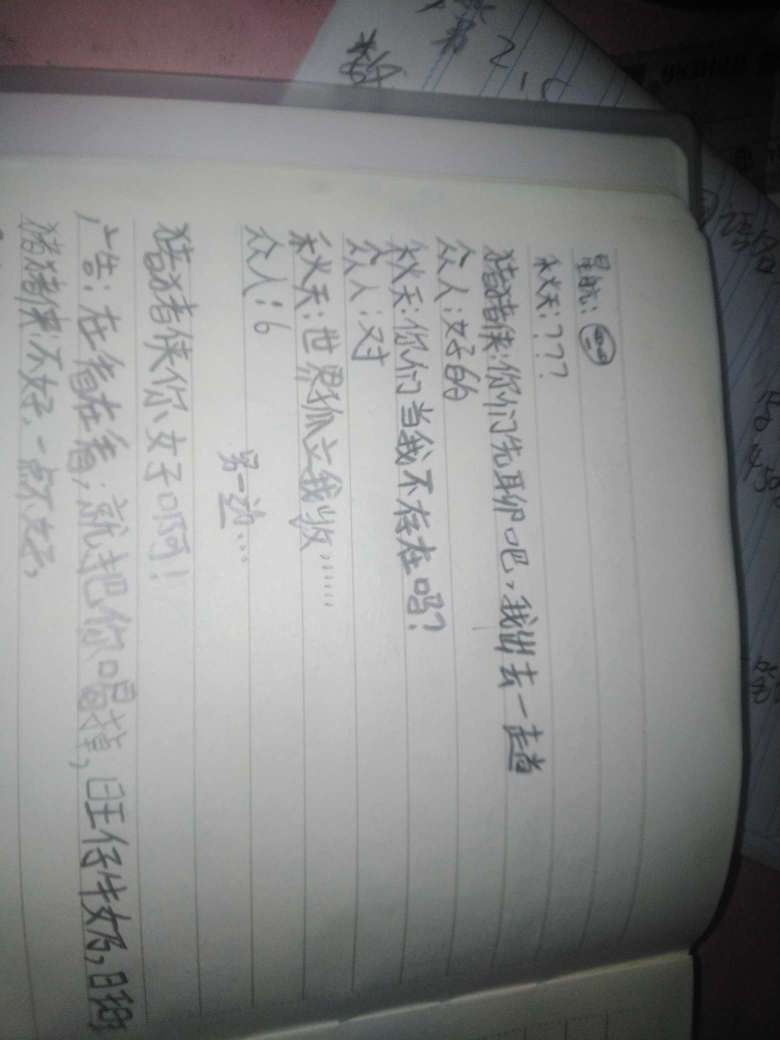 星航：
秋天：？？？
猪猪侠：你们先聊吧，我出去一趟
众人：好的
秋天：你们当我不存在吗？
众人：对
秋天：世界孤立我……
众人：6
另一边…
猪猪侠你好啊！
广告：在看在看，就把你喝掉，旺仔牛奶，
猪猪侠：不好，一点不好，
第2-